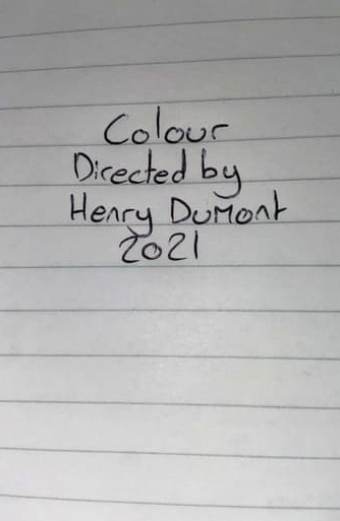 Colour
Directed by
Henry DuMont
2021